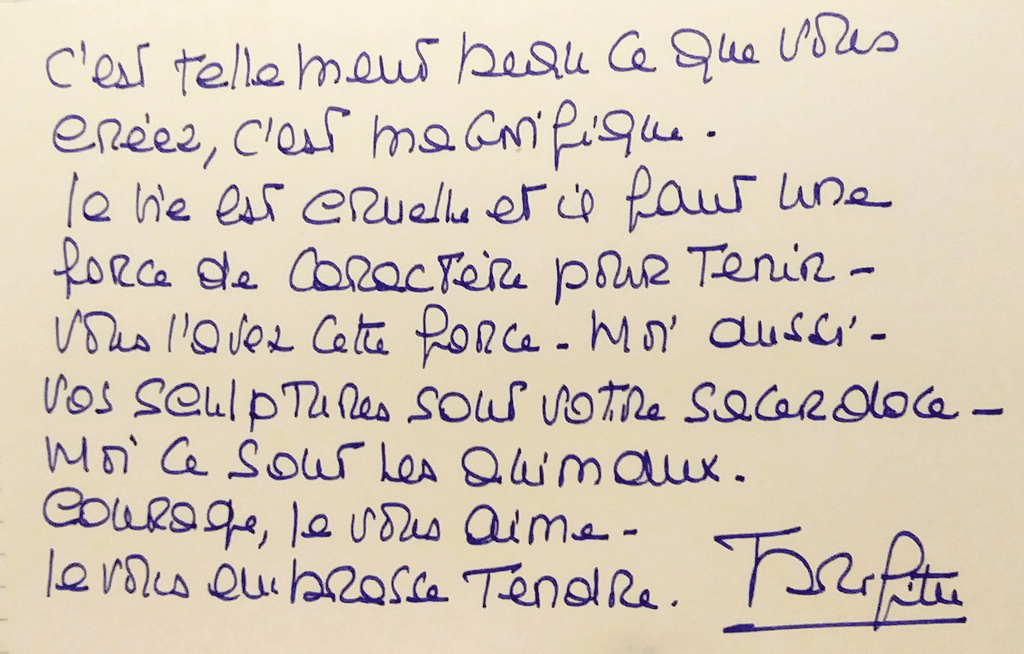 C'est tellement beau ce que vous
créez, c'est magnifique.
la vie est cruelle et il faut une
force de caractère pour tenir -
vous l'avez cette force - Moi aussi -
vos sculptures sont votre sacerdoce -
Moi ce sont les animaux.
Courage, je vous aime -
je vous embrasse tendre.